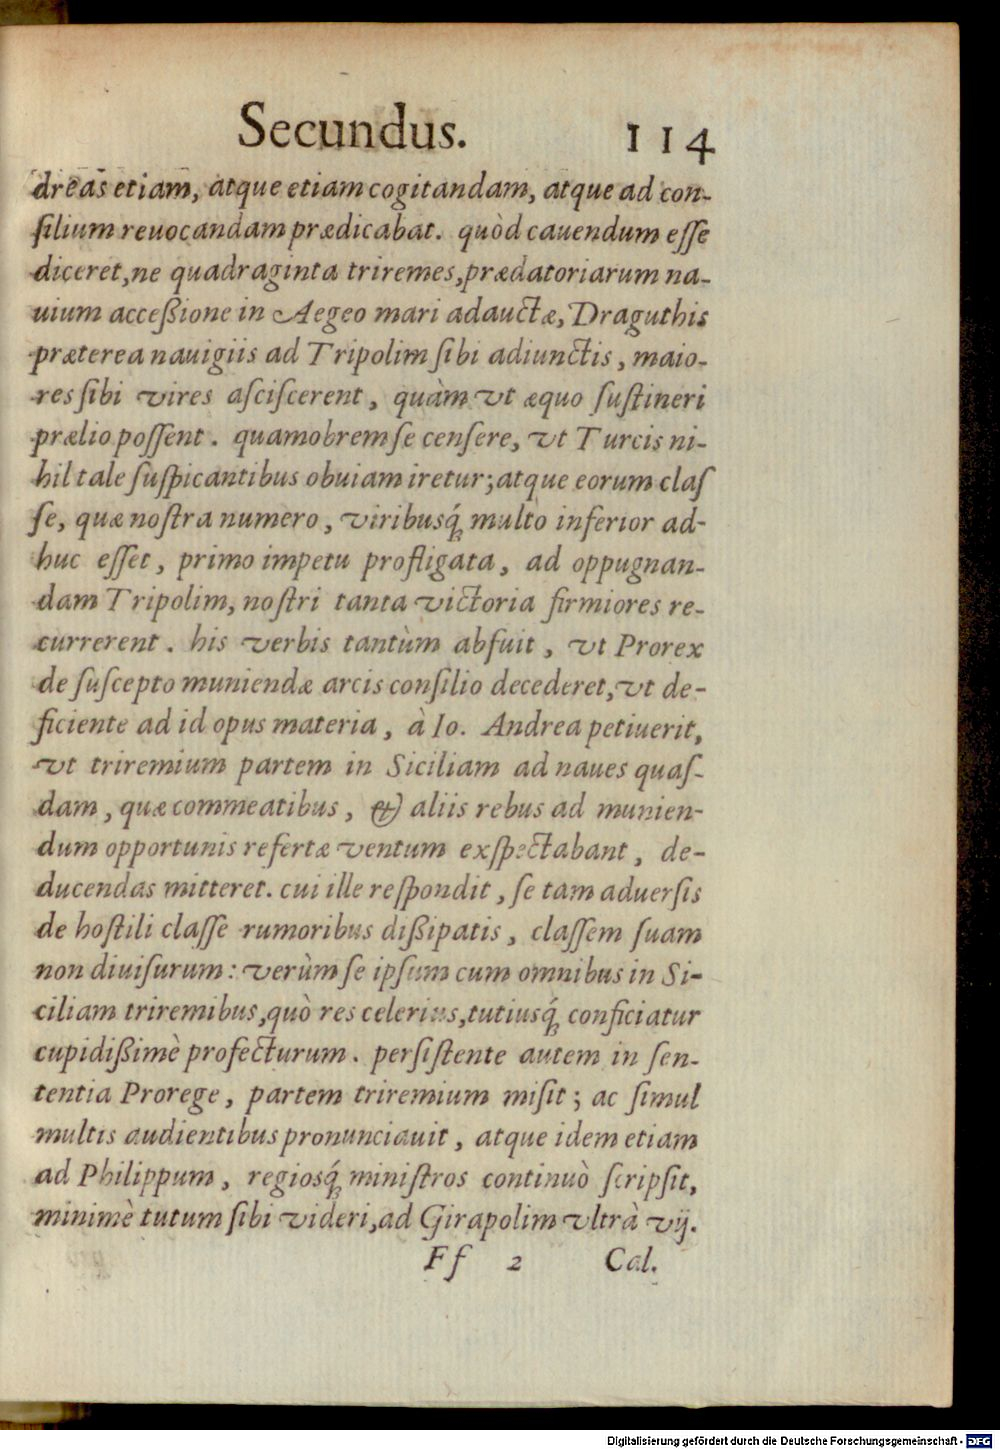 Secundus. 114
dreas etiam, atque etiam cogitandam, atque ad con-
ſilium reuocandam prædicabat. quòd cauendum eſſe
diceret, ne quadraginta triremes, prædatoriarum na-
uium acceßione in Aegeo mari adauctæ, Draguthis
præterea nauigiis ad Tripolim ſibi adiunctis, maio-
res ſibi vires aſciſcerent, quàm vt æquo ſuſtineri
prælio poſſent. quamobrem ſe cenſere, vt Turcis ni-
hil tale ſuſpicantibus obuiam iretur; atque eorum claſ
ſe, quæ noſtra numero, viribusq́; multo inferior ad-
huc eſſet, primo impetu profligata, ad oppugnan-
dam Tripolim, noſtri tanta victoria firmiores re-
currerent. his verbis tantùm abfuit, vt Prorex
de ſuſcepto muniendæ arcis conſilio decederet, vt de-
ficiente ad id opus materia, à Io. Andrea petiuerit,
vt triremium partem in Siciliam ad naues quaſ-
dam, quæ commeatibus, & aliis rebus ad munien-
dum opportunis refertæ ventum exſpectabant, de-
ducendas mitteret. cui ille reſpondit, ſe tam aduerſis
de hoſtili claſſe rumoribus dißipatis, claſſem ſuam
non diuiſurum: verùm ſe ipſum cum omnibus in Si-
ciliam triremibus, quò res celerius, tutiusq́; conficiatur
cupidißimè profecturum. perſiſtente autem in ſen-
tentia Prorege, partem triremium miſit; ac ſimul
multis audientibus pronunciauit, atque idem etiam
ad Philippum, regiosq́; miniſtros continuò ſcripſit,
minimè tutum ſibi videri, ad Girapolim vltrà vij.
Ff 2 Cal.
Digitalisierung gefördert durch die Deutsche Forschungsgemeinschaft - DFG